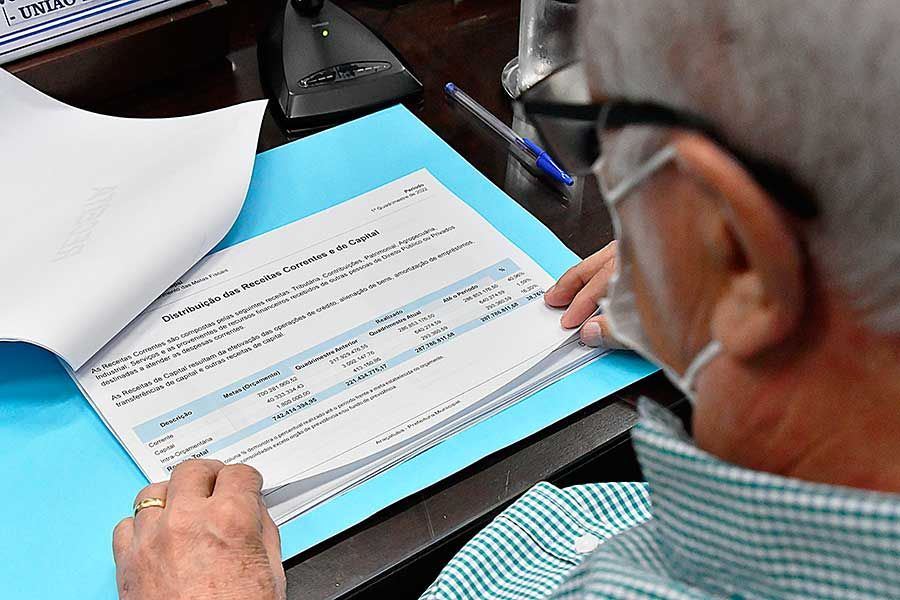 - UNIÃO
Período
1º Quadrimestre de 2022
das Metas Fiscais
Distribuição das Receitas Correntes e de Capital
As Receitas Correntes são compostas pelas seguintes receitas: Tributária, Contribuições, Patrimonial, Agropecuária,
Industrial, Serviços e as provenientes de recursos financeiros recebidos de outras pessoas de Direito Público ou Privados
destinadas a atender as despesas correntes.
As Receitas de Capital resultam da efetivação das operações de crédito, alienação de bens, amortização de empréstimos,
transferências de capital e outras receitas de capital.
Realizado
Descrição Metas (Orçamento) Quadrimestre Anterior Quadrimestre Atual Até o Período %
Corrente 700.281.060,52 217.929.476,55 286.853.176,50 286.853.176,50 40,96%
Capital 40.333.334,43 3.002.147,76 640.274,59 640.274,59 1,59%
Intra-Orçamentária 1.800.000,00 293.360,59 293.360,59 16,30%
Total 742.414.394,95 221.424.775,17 287.786.811,68 287.786.811,68 38,76%
coluna % demonstra o percentual realizado até o período frente a meta estabelecida no orçamento.
consolidados exceto órgão de previdência e/ou fundo de previdência.
Araçatuba - Prefeitura Municipal